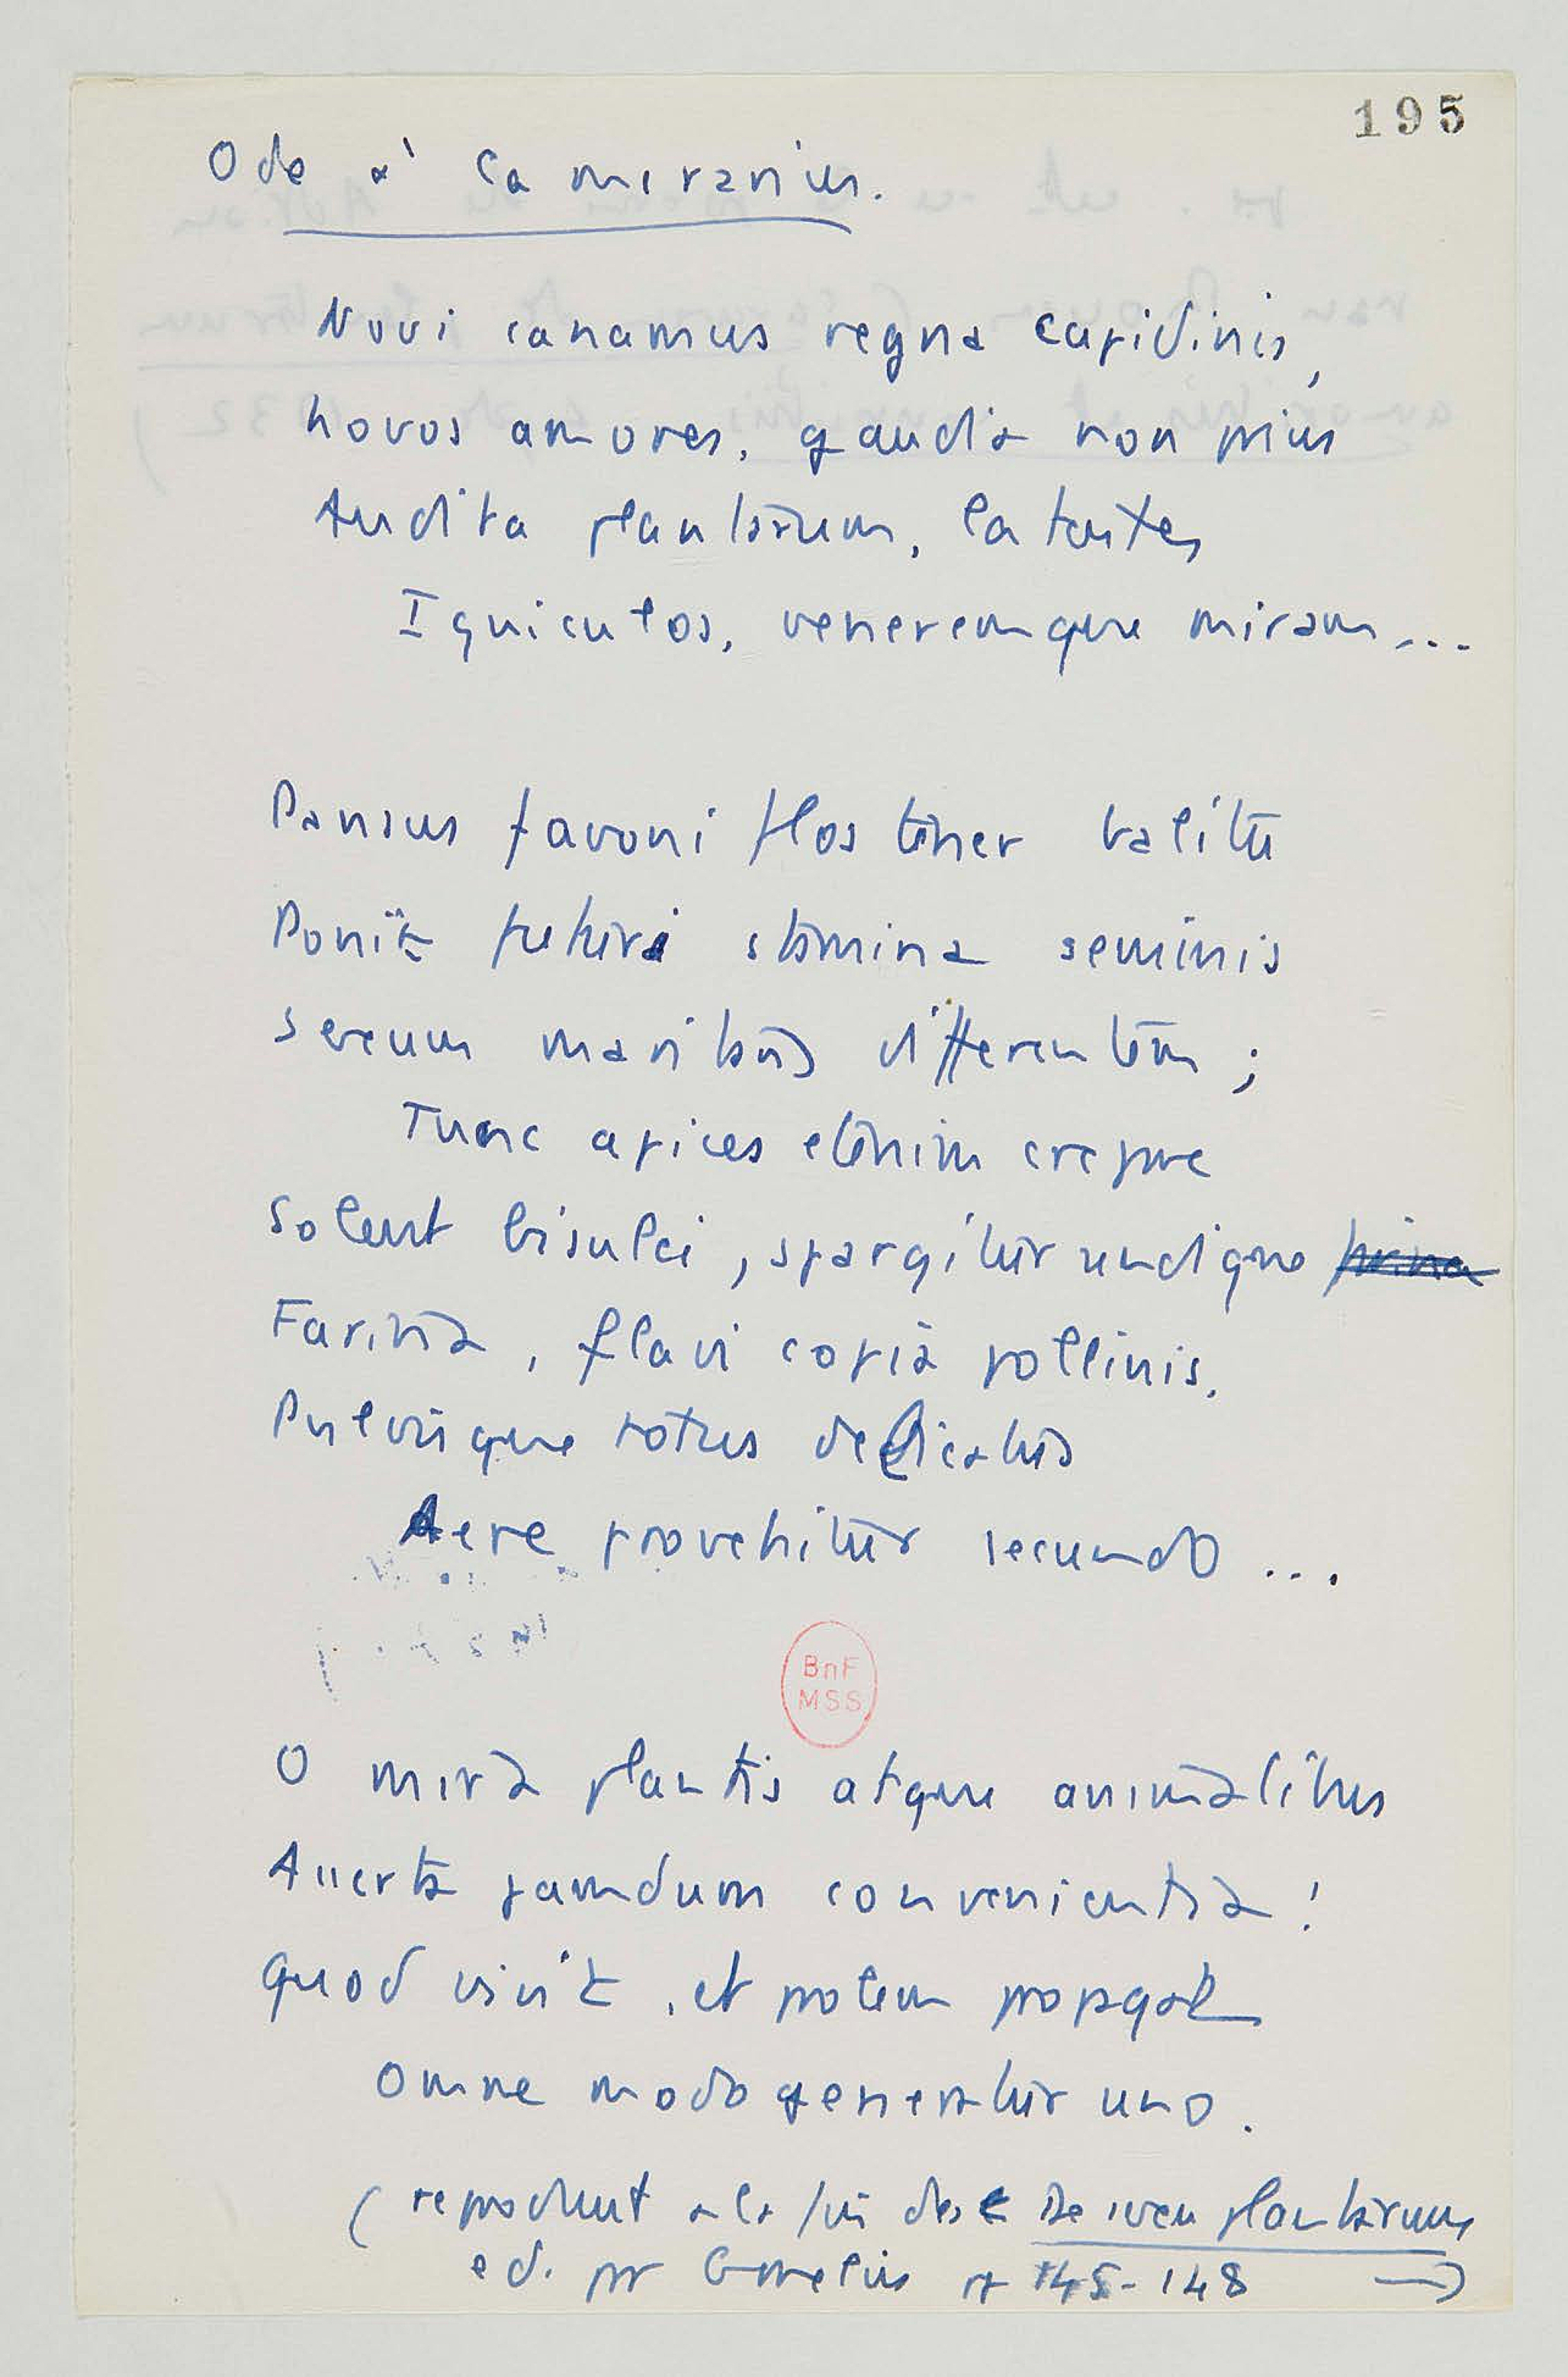 195
Ode à Camerarius.
Novi canamus regna cupidinis,
novos amores, gaudia non prius
Audita plantarum, latentes
Igniculos, veneremque miram...
Pansus favoni flos tener halitu
Ponit futuri stamina seminis
sexum maritus differentem ;
Tunc apices etenim crepare
Solent bisulci, spargitur undique
Farina, flavi copia pollinis,
Pulvisque totus delicatus
Aere provehitur secundo ...
BnF
MSS
O mira plantis atque animalibus
Asserta pamdum convenientia !
Quod vivit, et prolem propagat
Omne modo generatur uno.
( reproduit a la fin des De sexu plantarum
ed. par Gmelin p 145-148 →)